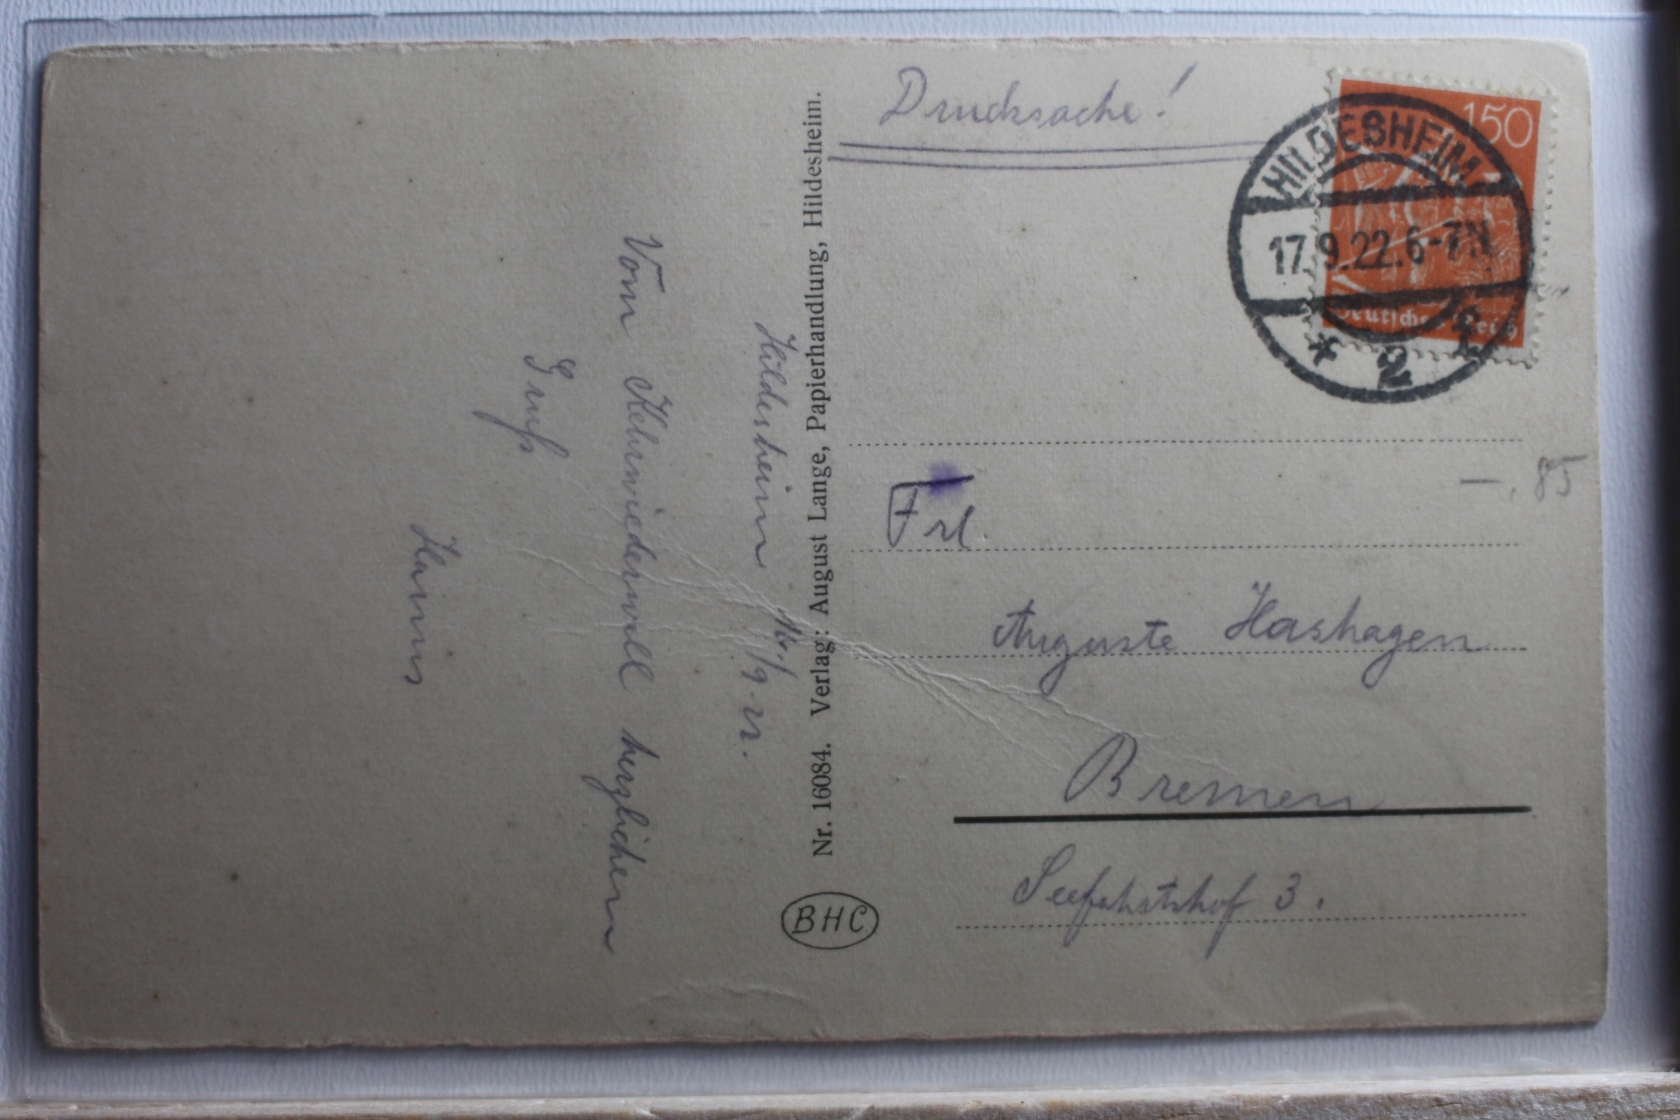 Drucksache!
150
HILDESHEIM
17.9.22.6-7N
* 2
Deutsches Reich
Hildesheim /9 22.
Vom Kehrwiederwall herzlichen
Gruß
Hanns
Nr. 16084. Verlag: August Lange, Papierhandlung, Hildesheim.
BHC
—.85
Frl.
Auguste Hashagen
Bremen
Seefahrtshof 3.